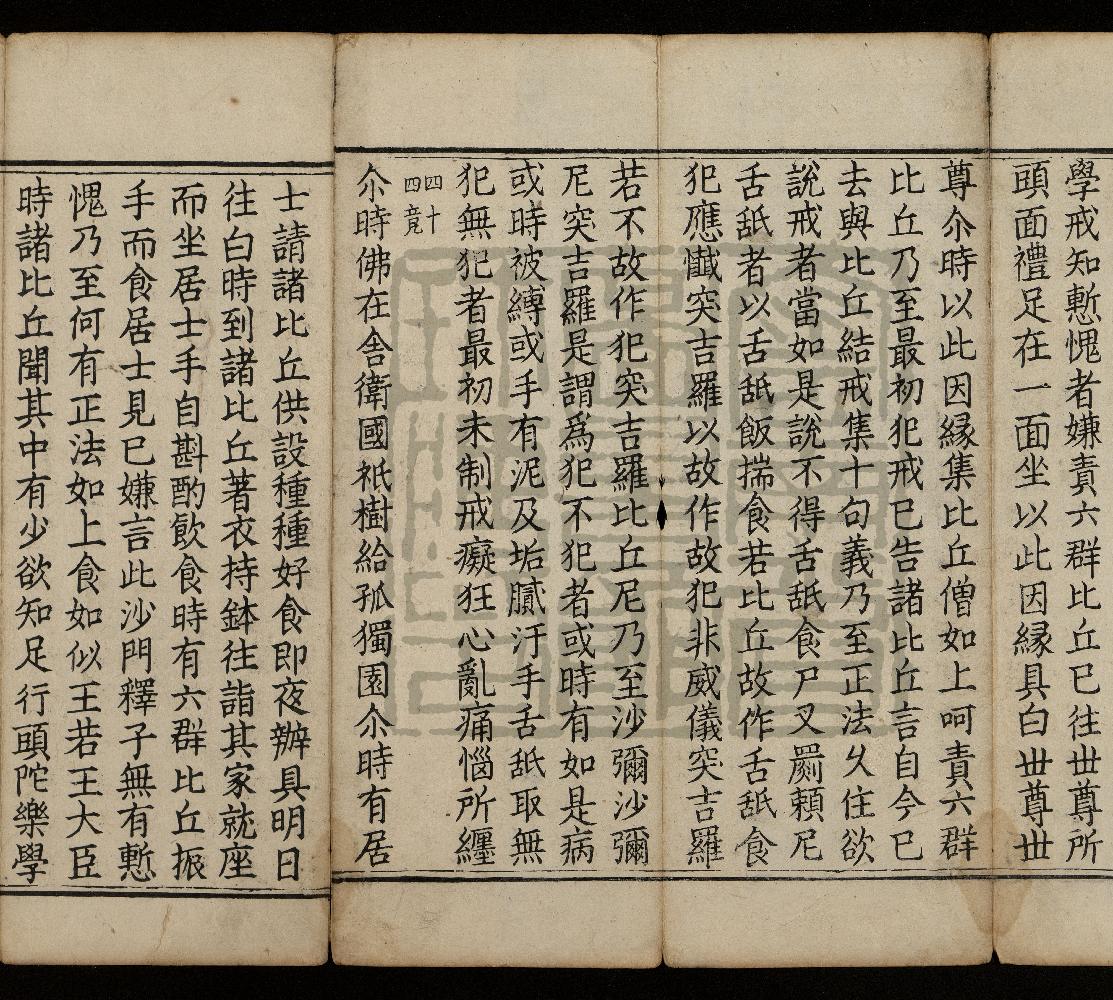 學戒知慙愧者嫌責六群比丘已往世尊所
頭面禮足在一面坐以此因縁具白世尊世
尊尒時以此因縁集比丘僧如上呵責六群
比丘乃至最初犯戒已告諸比丘言自今已
去與比丘結戒集十句義乃至正法久住欲
說戒者當如是說不得舌舐食尸叉罽賴尼
舌舐者以舌舐飯揣食若比丘故作舌舐食
犯應懴突吉羅以故作故犯非威儀突吉羅
若不故作犯突吉羅比丘尼乃至沙彌沙彌
尼突吉羅是謂爲犯不犯者或時有如是病
或時被縛或手有泥及垢膩汙手舌舐取無
犯無犯者最初未制戒癡狂心亂痛惱所纒
四十
四竟
尒時佛在舍衛國祇樹給孤獨園尒時有居
士請諸比丘供設種種好食即夜辦具明日
往白時到諸比丘著衣持鉢往詣其家就座
而坐居士手自斟酌飲食時有六群比丘振
手而食居士見已嫌言此沙門釋子無有慙
愧乃至何有正法如上食如似王若王大臣
時諸比丘聞其中有少欲知足行頭陀樂學